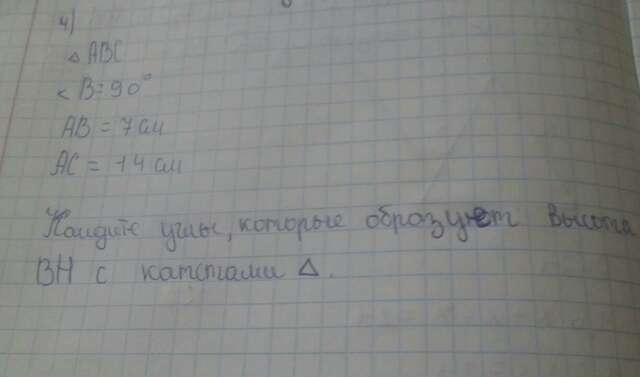 4)
△ ABC
< B = 90°
AB = 7 см
AC = 14 см
Найдите углы, которые образует высота
BH с катетами △.